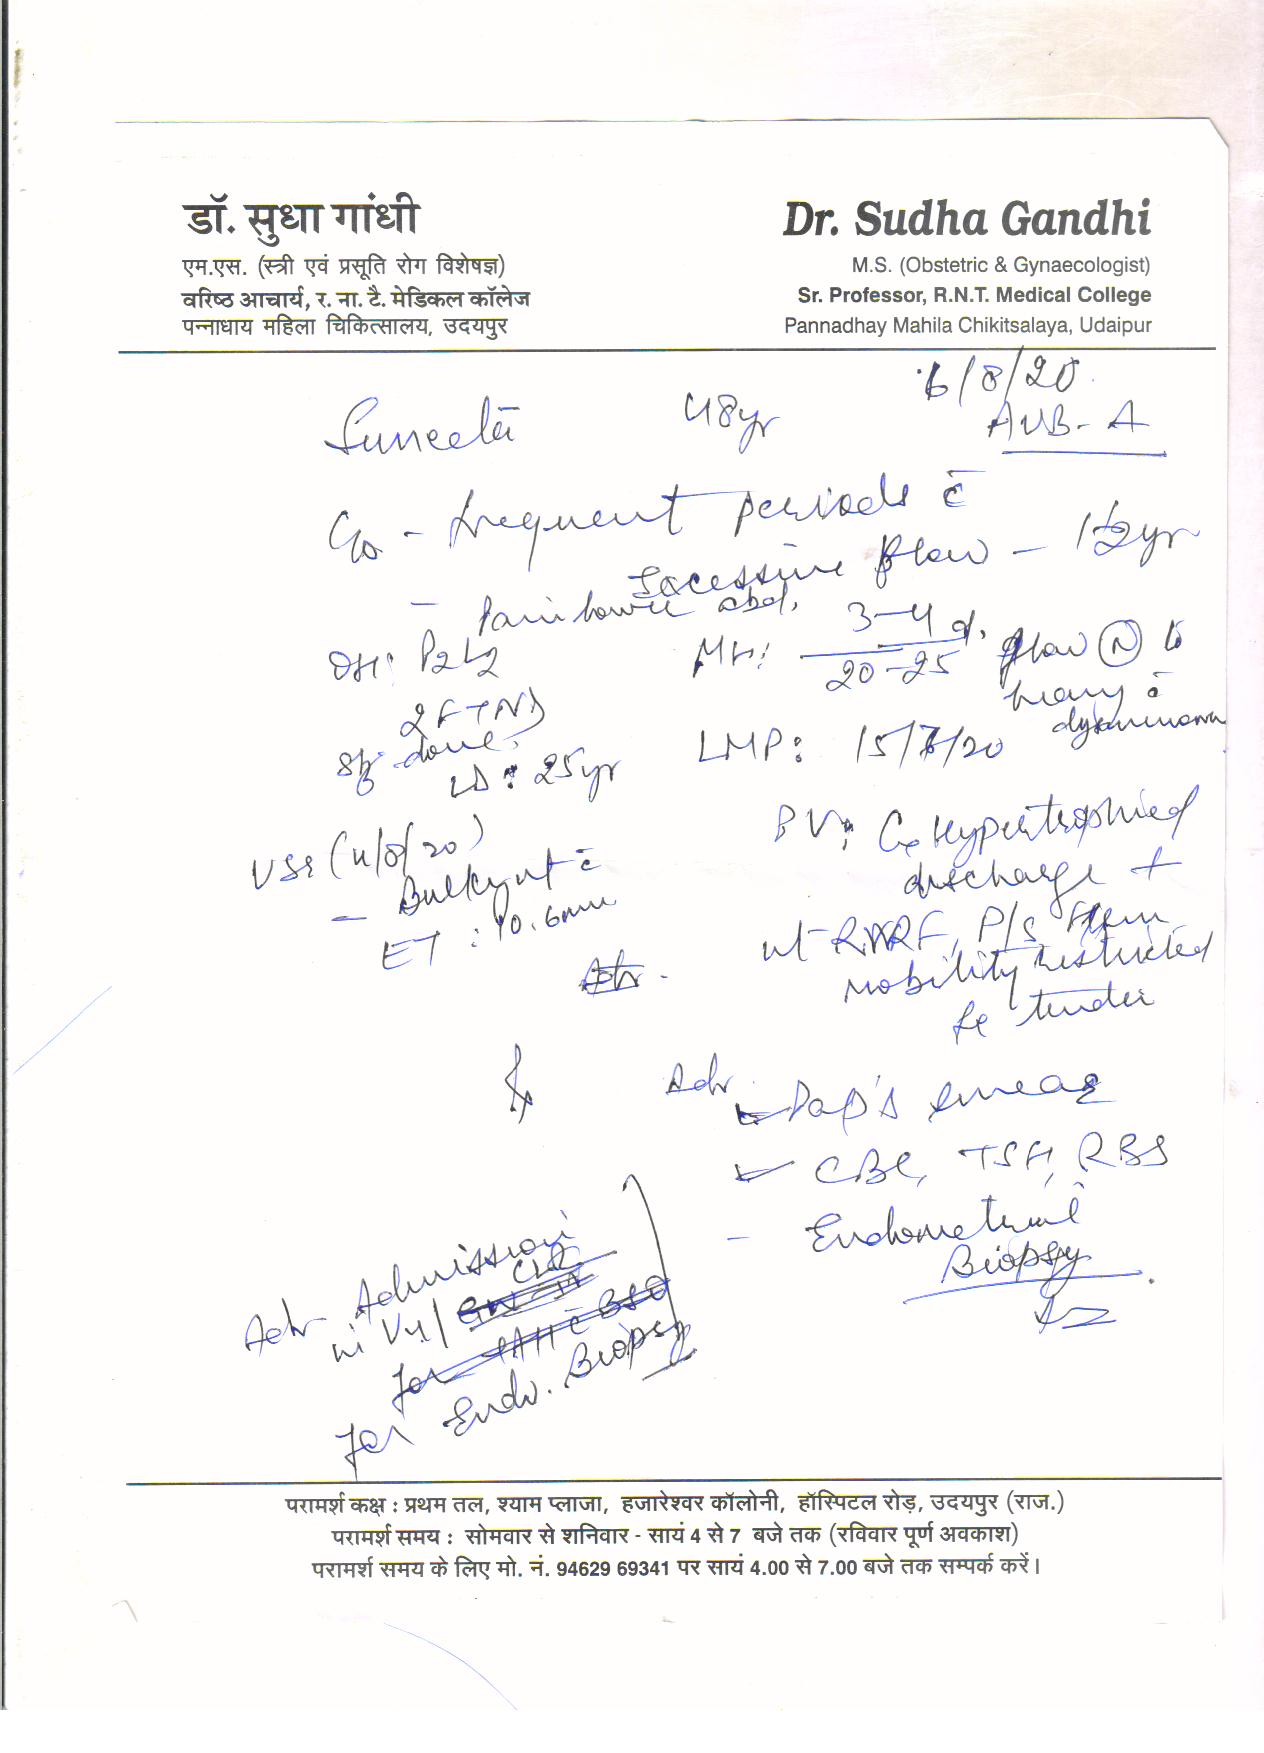 डॉ. सुधा गांधी
एम.एस. (स्त्री एवं प्रसूति रोग विशेषज्ञ)
वरिष्ठ आचार्य, र. ना. टै. मेडिकल कॉलेज
पन्नाधाय महिला चिकित्सालय, उदयपुर
Dr. Sudha Gandhi
M.S. (Obstetric & Gynaecologist)
Sr. Professor, R.N.T. Medical College
Pannadhay Mahila Chikitsalaya, Udaipur
6/8/20
Suneeta 48yr AUB-A
C/o - frequent periods c̄
Excessive flow - 1½yr
- Pain lower abd.
OH: P2L2
2 FTND
LD: 25yr
MH: 3-4 d. / 20-25 flow (N) to
heavy c̄
LMP: 15/7/20
USG
- Bulky ut c̄
ET: 10.6mm
PV: Cx Hypertrophied
discharge +
ut- RF, P/S
mobility restricted
tender
Adv
Pap's smear
CBC, TSH, RBS
- Endometrial
Biopsy
Adv Admission
for Endo. Biopsy
परामर्श कक्ष : प्रथम तल, श्याम प्लाजा, हजारेश्वर कॉलोनी, हॉस्पिटल रोड़, उदयपुर (राज.)
परामर्श समय : सोमवार से शनिवार - सायं 4 से 7 बजे तक (रविवार पूर्ण अवकाश)
परामर्श समय के लिए मो. नं. 94629 69341 पर सायं 4.00 से 7.00 बजे तक सम्पर्क करें।